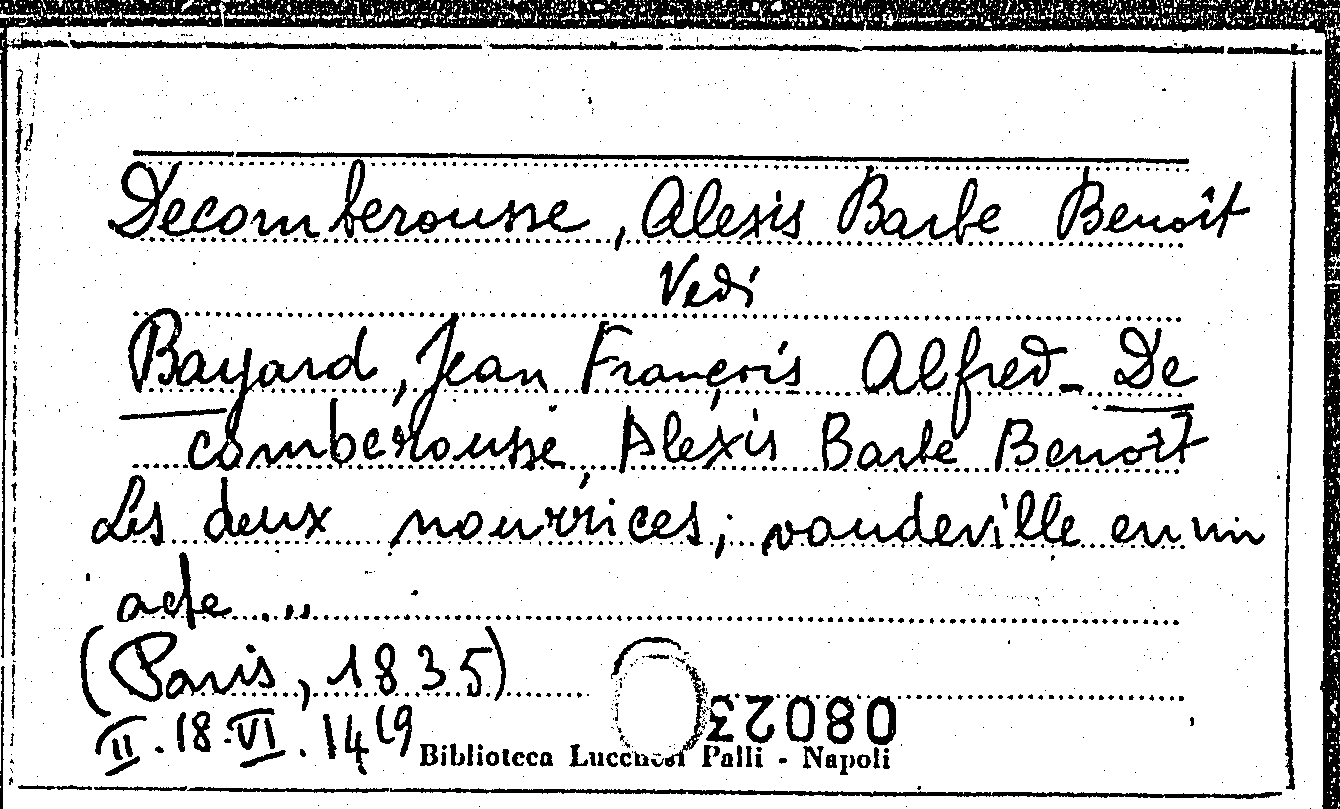 Decomberousse, Alexis Barbe Benoît
Vedi
Bayard, Jean François Alfred - De
comberousse, Alexis Barbe Benoît
Les deux nourrices; vaudeville en un
acte..."
(Paris, 1835)
II.18.VI.14(9
08023
Biblioteca Lucchesi Palli - Napoli